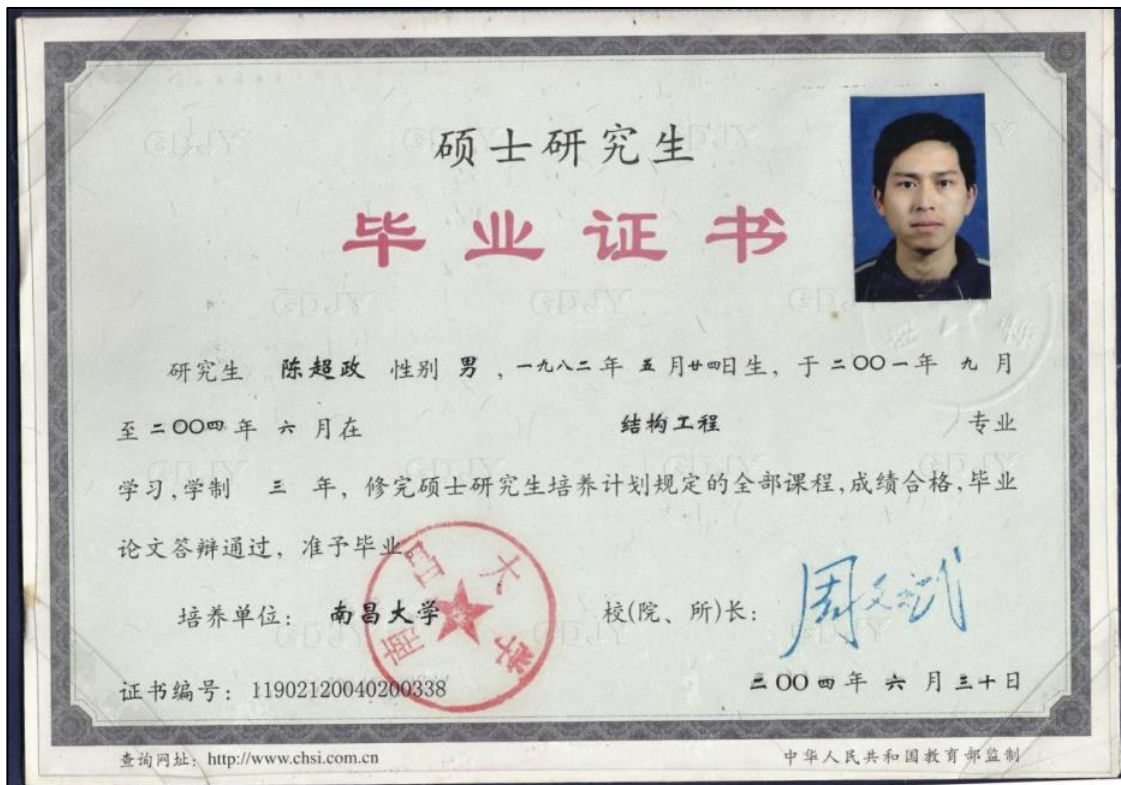 硕士研究生
毕业证书
研究生 陈超政 性别 男 ，一九八二年 五 月廿四日生，于 二〇〇一年 九 月
至 二〇〇四 年 六 月在 结构工程 专业
学习,学制 三 年，修完硕士研究生培养计划规定的全部课程,成绩合格,毕业
论文答辩通过，准予毕业。
培养单位： 南昌大学 校(院、所)长： 周文斌
南昌大学
证书编号：11902120040200338 二〇〇四 年 六 月 三十日
查询网址：http://www.chsi.com.cn 中华人民共和国教育部监制